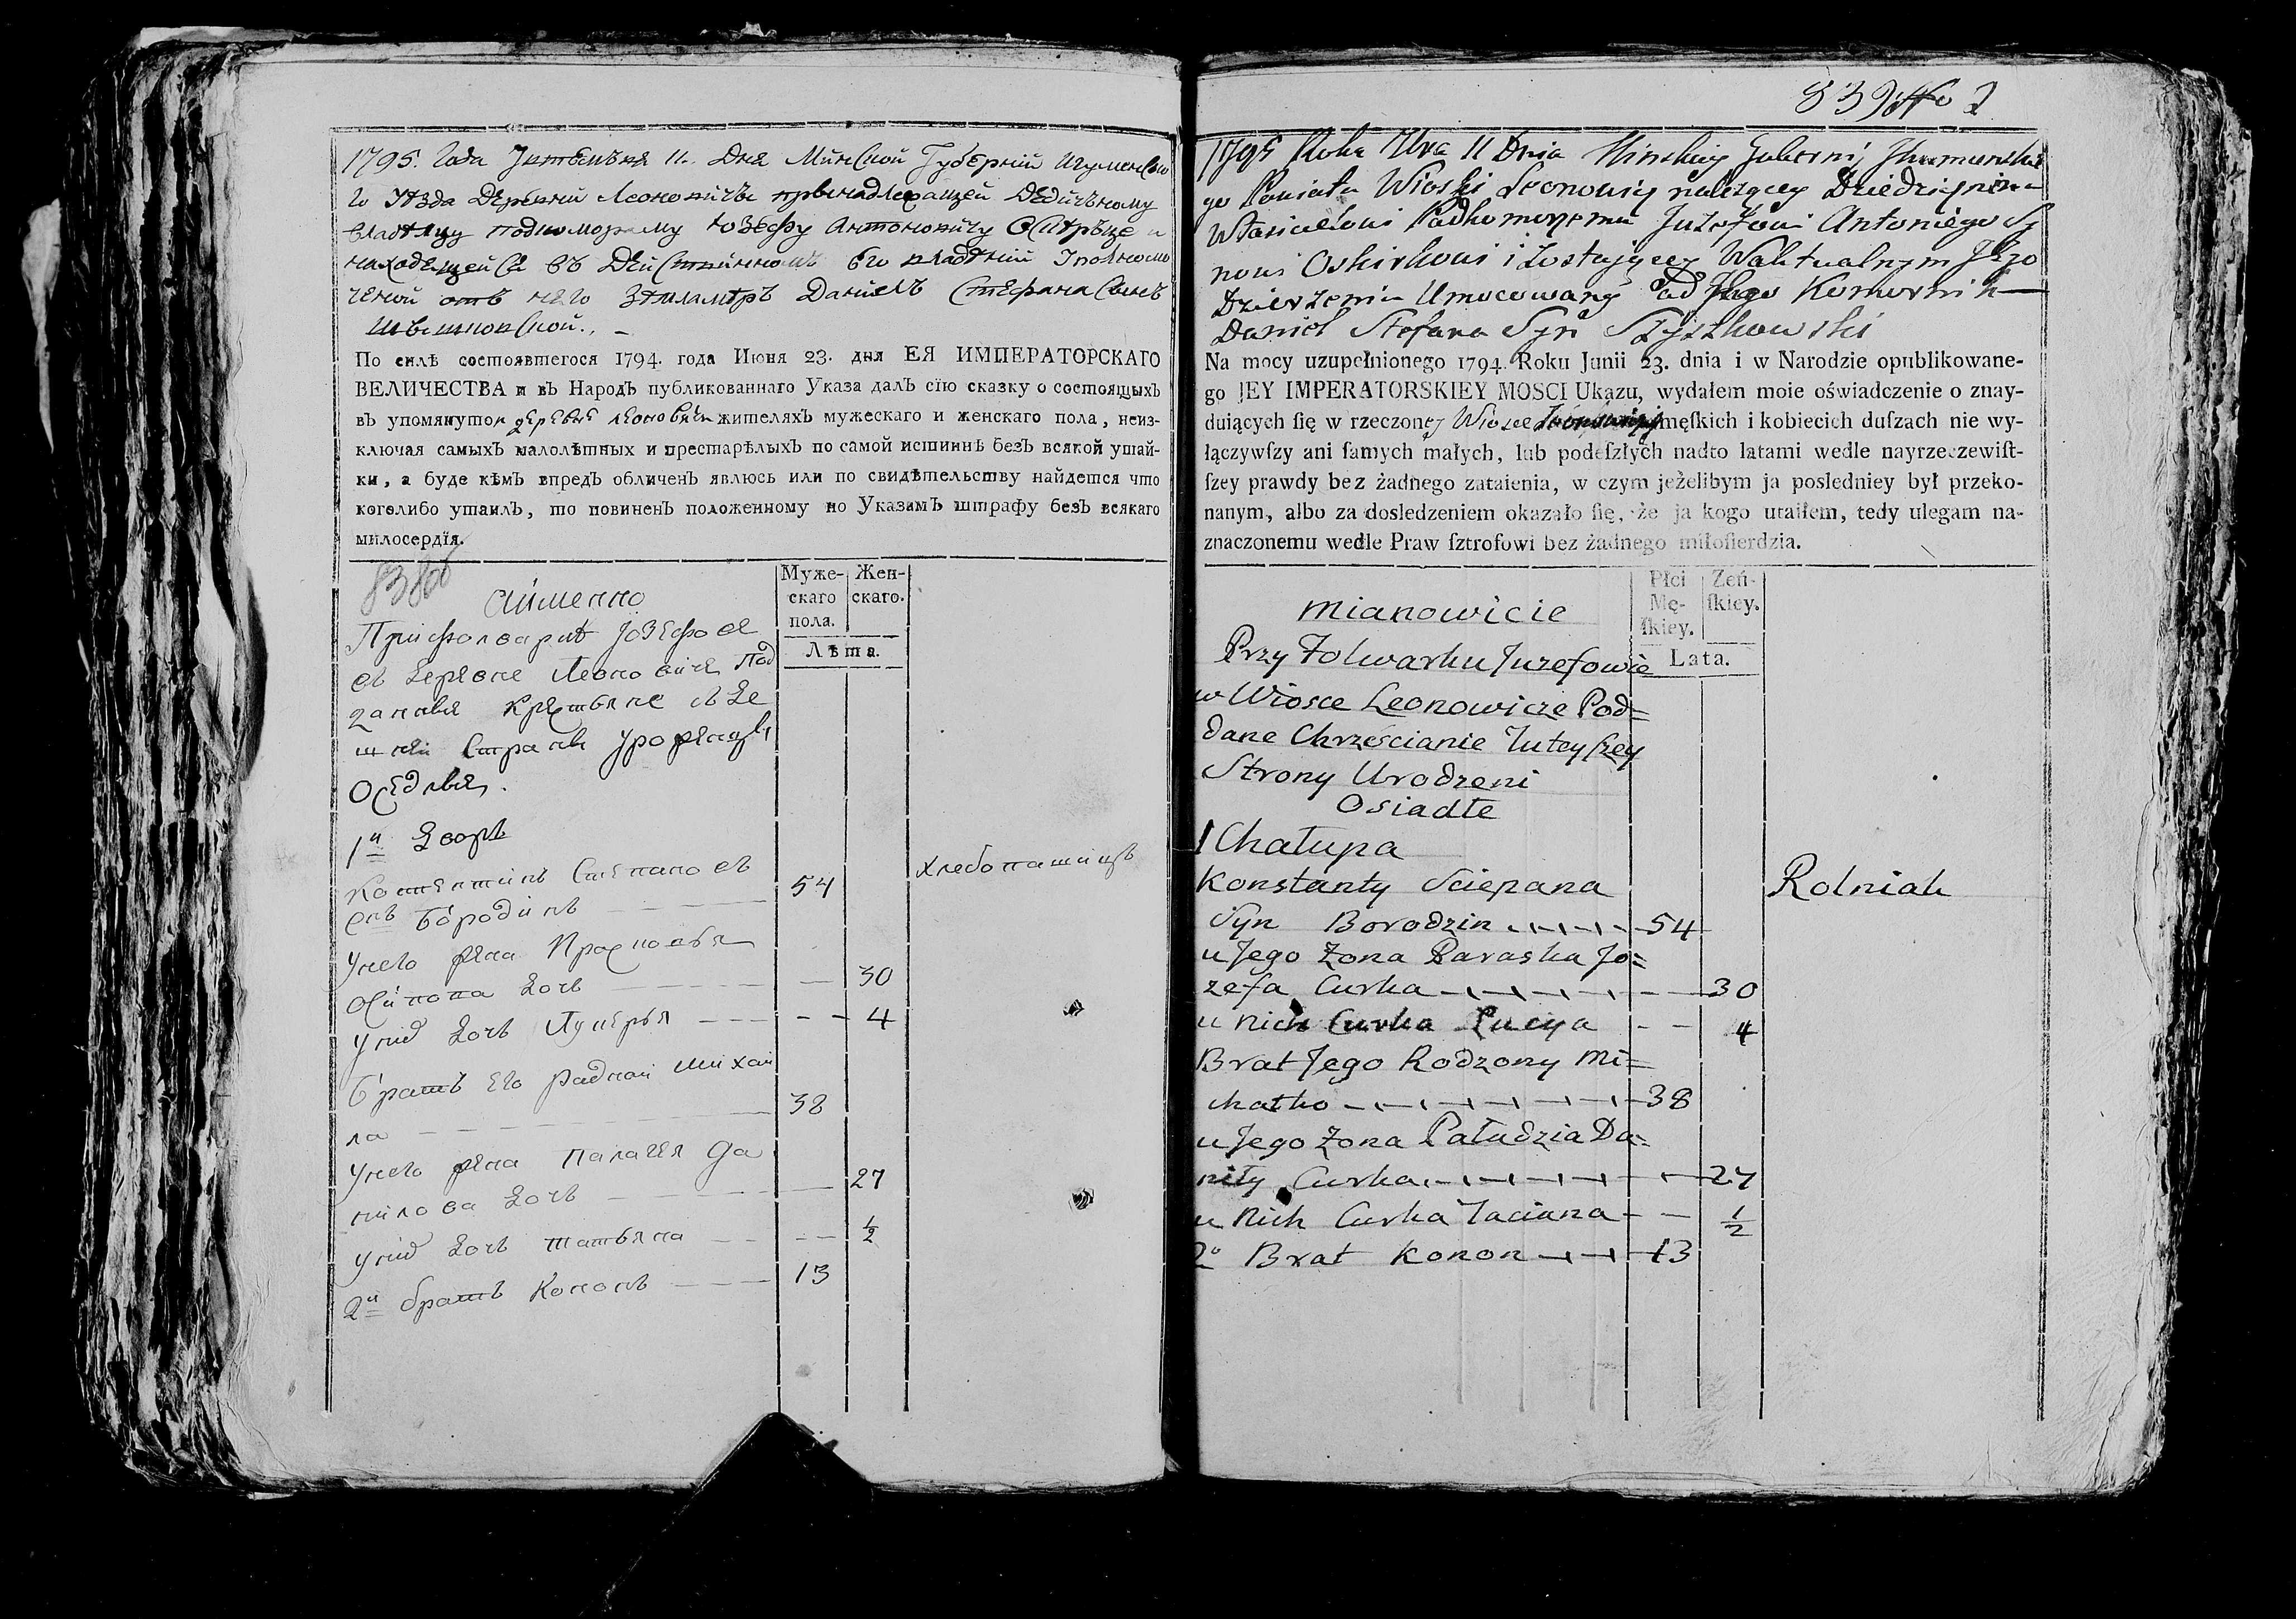 1795. Года Дня Минской Губерній Игуменско
го Уѣзда Деревни Леоновичъ принадлежащей Дедичъному
владелцу подкоморому Юзефу Антоновичу
находещейся въ его владѣній
ченой отъ него Даниелъ Стефана Сынъ
По силѣ состоявшегося 1794. года Июня 23. дня ЕЯ ИМПЕРАТОРСКАГО
ВЕЛИЧЕСТВА и въ Народъ публикованнаго Указа далъ сїю сказку о состоящыхъ
въ упомянутой деревне жителяхъ мужескаго и женскаго пола, неиз-
ключая самыхъ малолѣтныхъ и престарѣлыхъ по самой истиннѣ безъ всякой утай-
ки, а буде кѣмъ впредъ обличенъ явлюсь или по свидѣтельству найдется что
коголибо утаилъ, то повиненъ положенному по Указамъ штрафу безъ всякаго
милосердїя.
Муже- Жен-
скаго скаго.
пола.
Лѣта.
аименно
При фолварке
въ деревне Леоновиче Под
данныя Крестьяне
Страны
Оседлыя.
1й Дворъ
Степановъ
сnъ Бородинъ 54 хлебопашицъ
Унего жена
Осипова дочь 30
Унид дочь 4
Братъ Его радной Михай
ла 38
Унего жена Палагея Да
нилова дочь 27
Унид дочь татьяна ½
2й братъ Кононъ 13
839 No 2
1795 Roku 11 Dnia Minskiey Guberni
go Powiatu Wioski należącey
Podkomorzemu Juzefowi Antoniego Sy
nowi Oskirkowi i zostającey Jego
Dzierżeniu Umocowany od Jego Komornik
Daniel Stefana Syn Szyszkowski
Na mocy uzupełnionego 1794. Roku Junii 23. dnia i w Narodzie opublikowane-
go JEY IMPERATORSKIEY MOSCI Ukazu, wydałem moie oświadczenie o znay-
duiących ſię w rzeczoney Wiosce męſkich i kobiecich duſzach nie wy-
łączywſzy ani ſamych małych, lub podeſzłych nadto latami wedle nayrzeczewiſt-
ſzey prawdy bez żadnego zataienia, w czym jeżelibym ja posledniey był przeko-
nanym, albo za dosledzeniem okazało ſię, że ja kogo utaiłem, tedy ulegam na-
znaczonemu wedle Praw ſztrofowi bez żadnego miłoſierdzia.
Płci Zeń-
Mę- ſkiey.
ſkiey.
Lata.
Mianowicie
Przy Folwarku Juzefowie
w Wiosce Leonowicze Pod=
dane Chrześcianie Tuteyſzey
Strony Urodzeni
Osiadłe
1 Chałupa
Konstanty Sciepana Rolnik
Syn Borodzin 54
u Jego Żona Paraska Jo=
zefa Curka 30
u Nich Curka Lucya 4
Brat Jego Rodzony Mi=
chałko 38
u Jego Żona Pałudzia Da=
niły Curka 27
u Nich Curka Taciana ½
2o Brat Konon 13